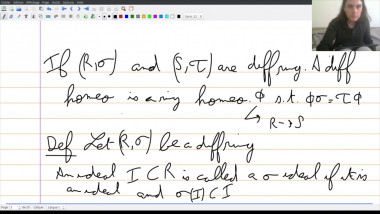 If (R,σ) and (S,τ) are diffring. A diff
homeo is a ring homeo. φ s.t. φσ = τφ
R → S
Def Let (R,σ) be a diffring
An ideal I ⊂ R is called a σ ideal if it is
an ideal and σ(I) ⊂ I